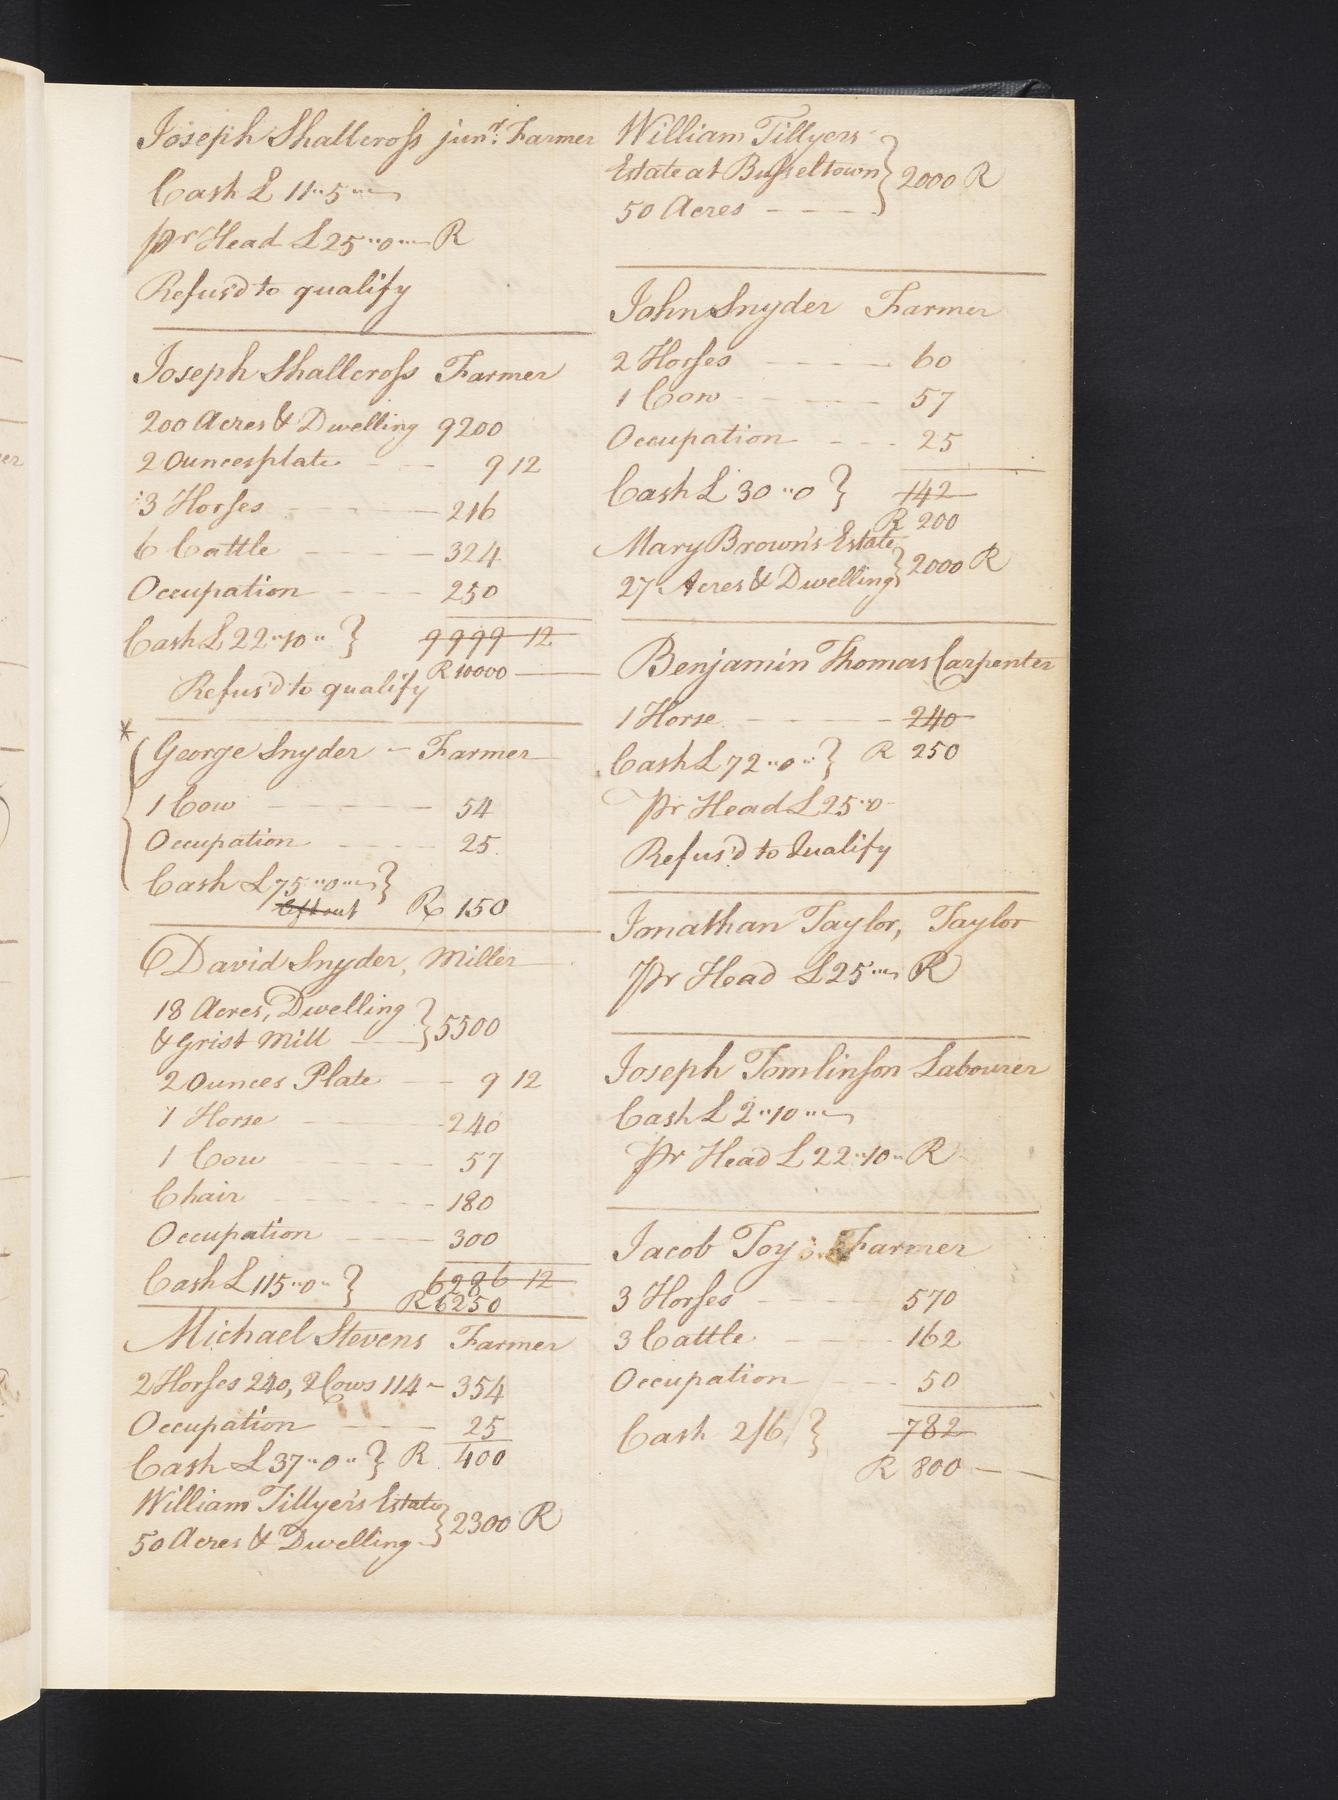 Joseph Shallcross junr. Farmer
Cash £ 11"5"
pr Head £25"0" R
Refus'd to qualify
Joseph Shallcross Farmer
200 Acres & Dwelling 9200
2 Ounces plate 9 12
3 Horses 216
6 Cattle 324
Occupation 250
Cash £22"10" } 9999 12
R 10000
Refus'd to qualify
*
George Snyder - Farmer
1 Cow 54
Occupation 25
Cash £75"0" }
left out R 150
David Snyder, Miller
18 Acres, Dwelling
& Grist Mill } 5500
2 Ounces Plate 9 12
1 Horse 240
1 Cow 57
Chair 180
Occupation 300
Cash £115"0" } 6286 12
R 6250
Michael Stevens Farmer
2 Horses 240, 2 Cows 114 - 354
Occupation 25
Cash £37"0" } R 400
William Tillyer's Estate
50 Acres & Dwelling } 2300 R
William Tillyers
Estate at Busseltown } 2000 R
50 Acres
John Snyder Farmer
2 Horses 60
1 Cow 57
Occupation 25
Cash £30"0 } 142
R 200
Mary Brown's Estate
27 Acres & Dwelling } 2000 R
Benjamin Thomas Carpenter
1 Horse 240
Cash £72"0" } R 250
pr Head £25"0
Refus'd to Qualify
Jonathan Taylor, Taylor
pr Head £25" R
Joseph Tomlinson Labourer
Cash £2"10"
pr Head £22"10" R
Jacob Toy Farmer
3 Horses 570
3 Cattle 162
Occupation 50
Cash 2/6 } 782
R 800